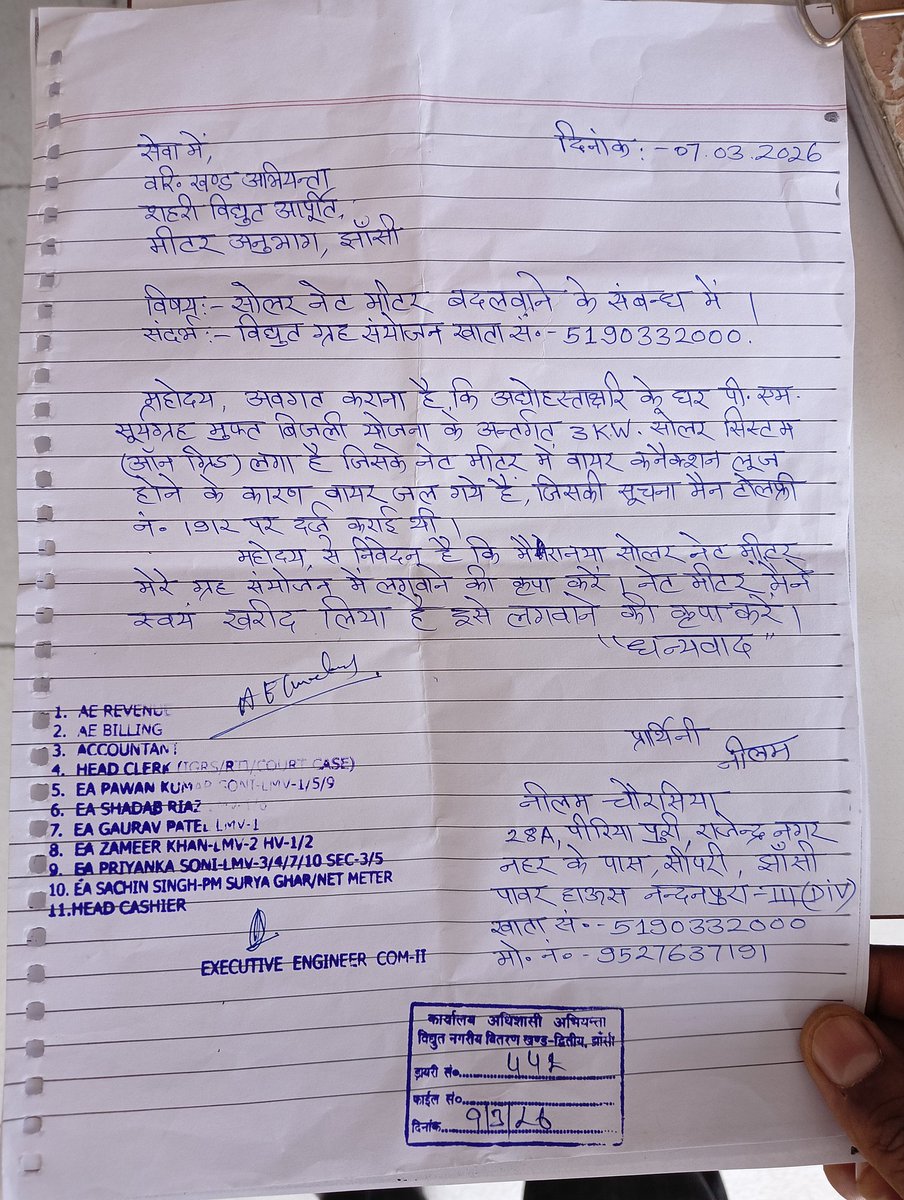 सेवा में,
दिनांक:-07.03.2026
वरि. खण्ड अभियन्ता
शहरी विद्युत आर्पूति,
मीटर अनुभाग, झाँसी
विषय:- सोलर नेट मीटर बदलवाने के संबन्ध में।
संदर्भ:- विद्युत ग्रह संयोजन खाता सं.-5190332000.
महोदय, अवगत कराना है, कि अधोहस्ताक्षरि के घर पी. एम.
सूर्यग्रह मुफ्त बिजली योजना के अर्न्तगत 3 K.W. सोलर सिस्टम
(ऑन ग्रिड) लगा है जिसके नेट मीटर में वायर कनैक्शन लूज
होने के कारण वायर जल गये है, जिसकी सूचना मैन टोलफ्री
नं. 1912 पर दर्ज कराई थी।
महोदय, से निवेदन है कि नया सोलर नेट मीटर
मेरे ग्रह संयोजन में लगवाने की कृपा करें। नेट मीटर मैने
स्वयं खरीद लिया है इसे लगवाने की कृपा करें।
"धन्यवाद"
1. AE REVENUE
2. AE BILLING
3. ACCOUNTANT
4. HEAD CLERK (IGRS/RTI/COURT CASE)
5. EA PAWAN KUMAR SONI-LMV-1/5/9
6. EA SHADAB RIAZ
7. EA GAURAV PATEL LMV-1
8. EA ZAMEER KHAN-LMV-2 HV-1/2
9. EA PRIYANKA SONI-LMV-3/4/7/10 SEC-3/5
10. EA SACHIN SINGH-PM SURYA GHAR/NET METER
11.HEAD CASHIER
EXECUTIVE ENGINEER COM-II
प्रार्थिनी
नीलम
नीलम चौरसिया
28A, पीरिया पुरी, राजेन्द्र नगर
नहर के पास, सीपरी, झाँसी
पावर हाऊस नन्दनपुरा-III (DIV)
खाता सं.-5190332000
मो. नं.-9527637191
कार्यालय अधिशासी अभियन्ता
विद्युत नगरीय वितरण खण्ड-द्वितीय, झाँसी
डायरी सं०
फाईल सं०
दिनांक 9/3/26